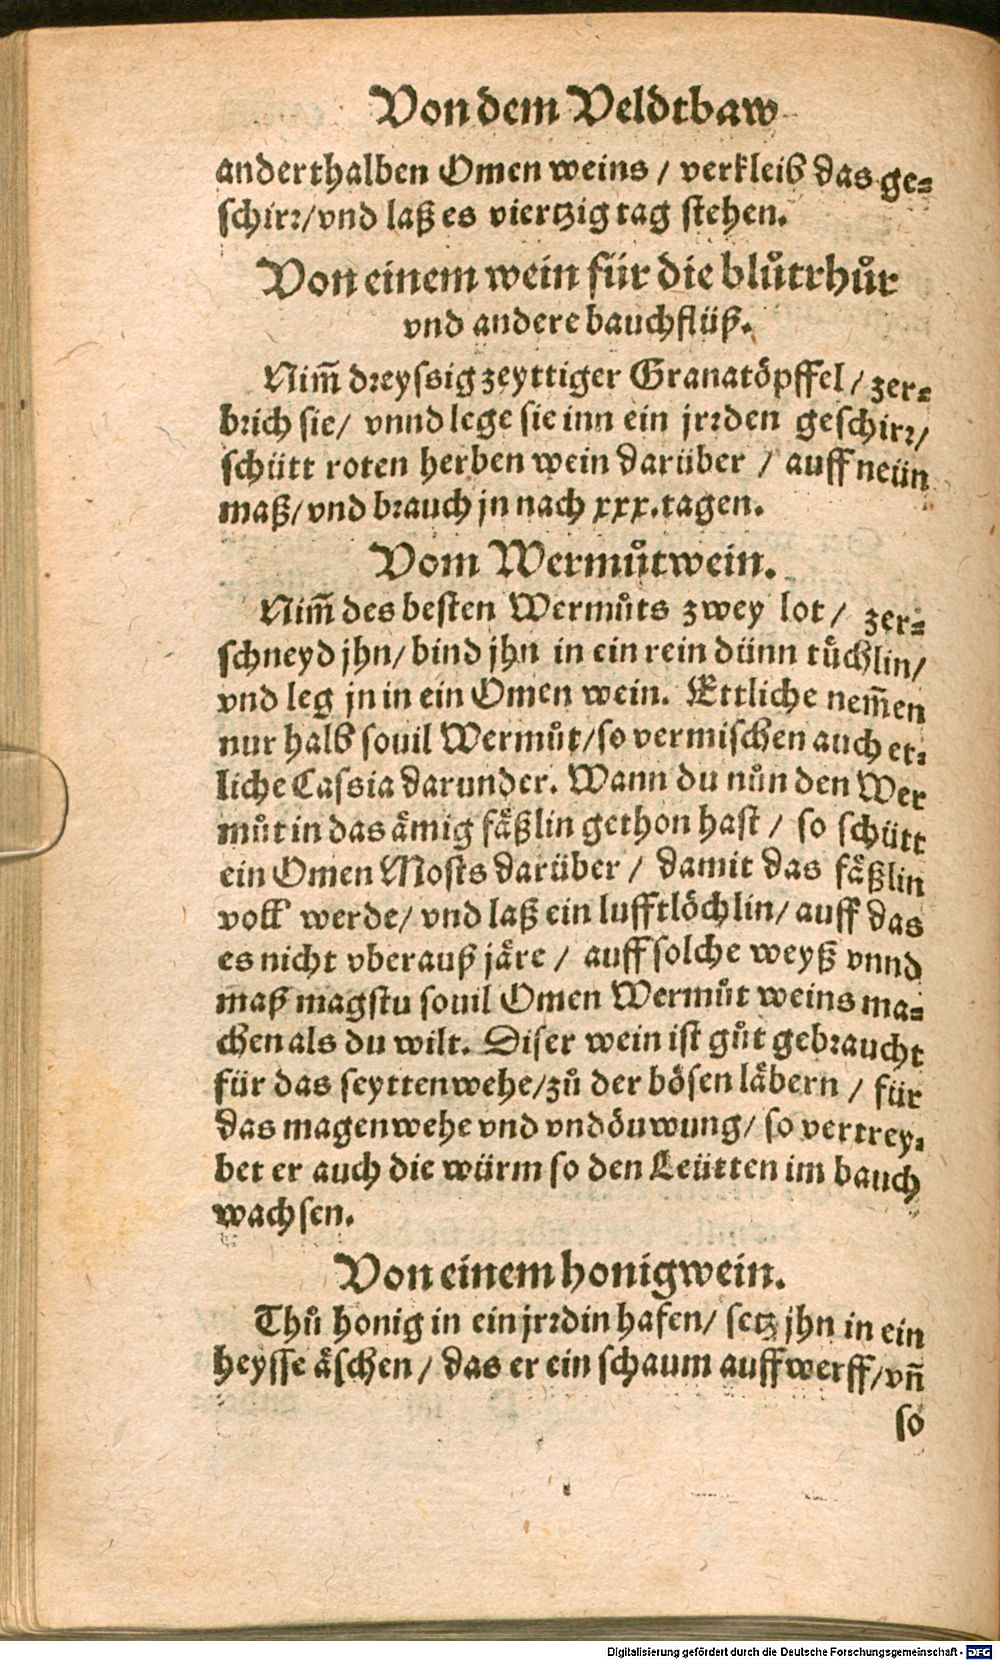 Von dem Veldtbaw
anderthalben Omen weins / verkleib das ge⸗
schirr/vnd laß es viertzig tag stehen.
Von einem wein für die blůtrhůr
vnd andere bauchflüß.
Nim̃ dreyssig zeyttiger Granatöpffel / zer⸗
brich sie/ vnnd lege sie inn ein jrrden geschirr/
schütt roten herben wein darüber / auff neün
maß/ vnd brauch jn nach xxx. tagen.
Vom Wermůtwein.
Nim̃ des besten Wermůts zwey lot / zer⸗
schneyd jhn/ bind jhn in ein rein dünn tüchlin/
vnd leg jn in ein Omen wein. Ettliche nem̃en
nur halb souil Wermůt/so vermischen auch et⸗
liche Cassia darunder. Wann du nůn den Wer
můt in das ämig fäßlin gethon hast / so schütt
ein Omen Mosts darüber / damit das fäßlin
voll werde/ vnd laß ein lufftlöchlin/ auff das
es nicht vberauß järe / auff solche weyß vnnd
maß magstu souil Omen Wermůt weins ma⸗
chen als du wilt. Diser wein ist gůt gebraucht
für das seyttenwehe/zů der bösen läbern / für
das magenwehe vnd vndöuwung/ so vertrey⸗
bet er auch die würm so den Leütten im bauch
wachsen.
Von einem honigwein.
Thů honig in ein jrrdin hafen/ setz jhn in ein
heysse äschen / das er ein schaum auffwerff/vñ
so
Digitalisierung gefördert durch die Deutsche Forschungsgemeinschaft - DFG